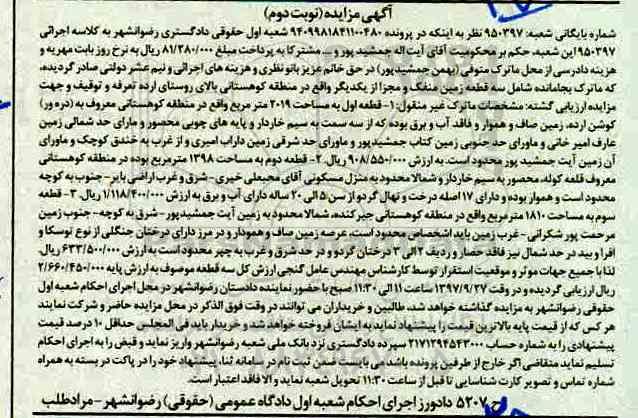 آگهی مزایده (نوبت دوم)
شماره بایگانی شعبه: ۹۵۰۳۹۷ نظر به اینکه در پرونده ۹۴۰۹۹۸۱۸۴۱۱۰۰۴۸۰ شعبه اول حقوقی دادگستری رضوانشهر به کلاسه اجرائی
۹۵۰۳۹۷ این شعبه، حکم بر محکومیت آقای آیت اله جمشید پور و ... مشترکا به پرداخت مبلغ ۸۱/۳۸۰/۰۰۰ ریال به نرخ روز بابت مهریه و
هزینه دادرسی از محل ماترک متوفی (بهمن جمشیدپور) در حق خانم عزیز بانو نظری و هزینه های اجرائی و نیم عشر دولتی صادر گردیده،
که ماترک بجامانده شامل سه قطعه زمین منفک و مجزا از یکدیگر واقع در منطقه کوهستانی بالای روستای ارده تعرفه و توقیف و جهت
مزایده ارزیابی گشته: مشخصات ماترک غیر منقول: ۱- قطعه اول به مساحت ۲۰۱۹ متر مربع واقع در منطقه کوهستانی معروف به (دره ور)
کوشن ارده، زمین صاف و هموار و فاقد آب و برق بوده که از سه سمت به سیم خاردار و پایه های چوبی محصور و مارای حد شمالی زمین
عارف امیر خانی و ماورای حد جنوبی زمین کتاب جمشید پور و ماورای حد شرقی زمین داراب امیری و از غرب به خندق کوچک و ماورای
آن زمین آیت جمشید پور محدود است. به ارزش ۹۰۸/۵۵۰/۰۰۰ ریال. ۲- قطعه دوم به مساحت ۱۳۹۸ مترمربع بوده در منطقه کوهستانی
معروف قلعه کوله، محصور به سیم خاردار و شمالا محدود به منزل مسکونی آقای محبعلی خیری - شرق و غرب اراضی بایر - جنوب به کوچه
محدود است و هموار بوده و دارای ۱۷ اصله درخت و نهال گردو از سن ۵ الی ۲۰ ساله دارای آب و برق به ارزش ۱/۱۱۸/۴۰۰/۰۰۰ ریال. ۳- قطعه
سوم به مساحت ۱۸۱۰ مترمربع واقع در منطقه کوهستانی جیر کنده، شمالا محدود به زمین آیت جمشیدپور - شرق به کوچه - جنوب زمین
مرحمت پور شکرانی - غرب زمین باید اشخاص محدود است، عرصه زمین صاف و هموار و در مرز دارای درختان جنگلی از نوع توسکا و
افرا و بید در حد شمال نیز فاقد حصار و ردیف ۲ الی ۳ درختان گردو و در حد شرق و غرب به چپر محدود است به ارزش ۶۳۳/۵۰۰/۰۰۰ ریال.
لذا با جمیع جهات موثر و موقعیت استقرار توسط کارشناس مهندس عامل گنجی ارزش کل سه قطعه موصوف به ارزش پایه ۲/۶۶۰/۴۵۰/۰۰۰
ریال ارزیابی گردیده و در وقت ۱۳۹۷/۹/۲۷ ساعت ۱۱ الی ۱۱:۳۰ صبح با حضور نماینده دادستان رضوانشهر در محل اجرای احکام شعبه اول
حقوقی رضوانشهر به مزایده گذاشته خواهد شد، طالبین و خریداران می توانند در وقت فوق الذکر در محل مزایده حاضر و شرکت نمایند
هر کس که از قیمت پایه بالاترین قیمت را پیشنهاد نماید به ایشان فروخته خواهد شد و خریدار باید فی المجلس حداقل ۱۰ درصد قیمت
پیشنهادی را به شماره حساب ۲۱۷۱۲۹۴۵۴۳۰۰۰ سپرده دادگستری نزد بانک ملی شعبه رضوانشهر واریز نماید و قبض را به اجرای احکام
تسلیم نماید متقاضی اگر خارج از طرفین پرونده باشد، می بایست ضمن ثبت نام در سامانه ثنا، پیشنهاد خود را در پاکت در بسته به همراه
شماره تماس و تصویر کارت شناسایی تا قبل از ساعت ۱۱:۳۰ تحویل شعبه نماید و الا فاقد اعتبار است.
ح ۵۲۰۷ دادورز اجرای احکام شعبه اول دادگاه عمومی (حقوقی) رضوانشهر - مرادطلب